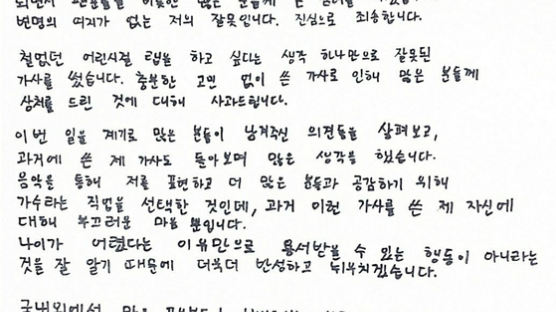 변명의 여지가 없는 저의 잘못입니다. 진심으로 죄송합니다.
철없던 어린시절 랩을 하고 싶다는 생각 하나만으로 잘못된
가사를 썼습니다. 충분한 고민 없이 쓴 가사로 인해 많은 분들께
상처를 드린 것에 대해 사과드립니다.
이번 일을 계기로 많은 분들이 남겨주신 의견들을 살펴보고,
과거에 쓴 제 가사도 돌아보며 많은 생각을 했습니다.
음악을 통해 저를 표현하고 더 많은 분들과 공감하기 위해
가수라는 직업을 선택한 것인데, 과거 이런 가사를 쓴 제 자신에
대해 부끄러운 마음 뿐입니다.
나이가 어렸다는 이유만으로 용서받을 수 있는 행동이 아니라는
것을 잘 알기 때문에 더욱더 반성하고 뉘우치겠습니다.